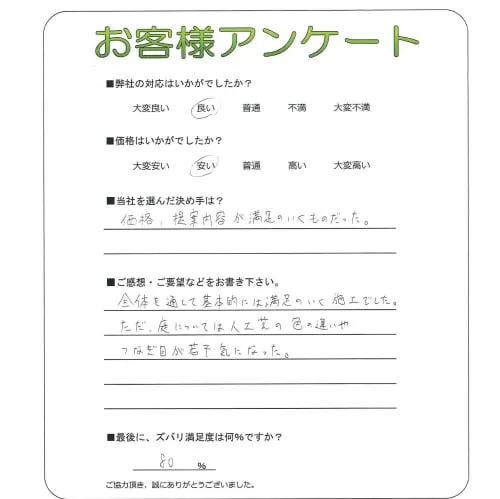 お客様アンケート
■弊社の対応はいかがでしたか？
大変良い 良い 普通 不満 大変不満
■価格はいかがでしたか？
大変安い 安い 普通 高い 大変高い
■当社を選んだ決め手は？
価格、提案内容が満足のいくものだった。
■ご感想・ご要望などをお書き下さい。
全体を通して基本的には満足のいく施工でした。
ただ、庭については人工芝の色の違いや
つなぎ目が若干気になった。
■最後に、ズバリ満足度は何%ですか？
80 %
ご協力頂き、誠にありがとうございました。